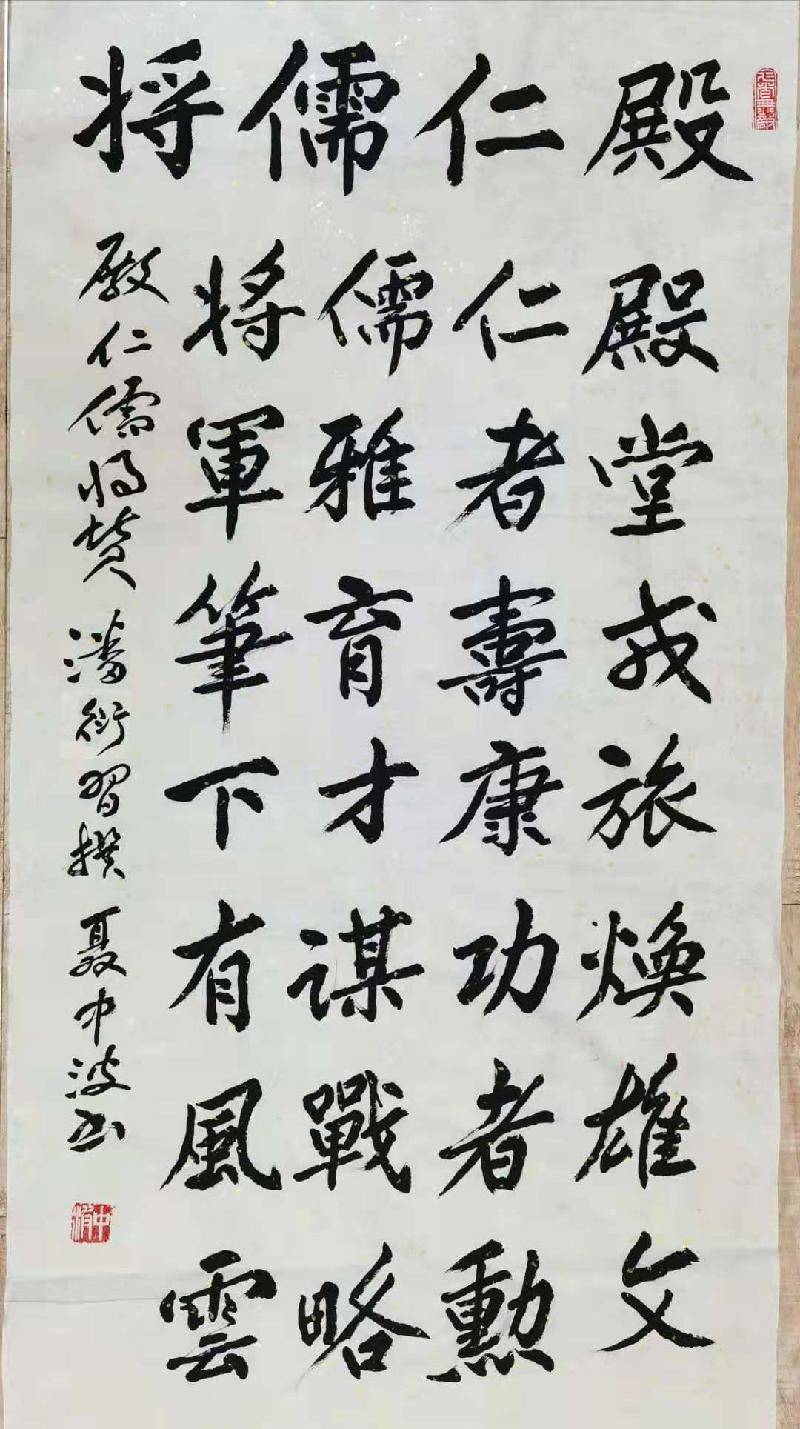 殿仁儒将
殿堂戎旅焕雄文
仁者壽康功者勳
儒雅育才谋戰略
将軍筆下有風雲
殿仁儒将赞 潘衍習撰 聂中波书
中波